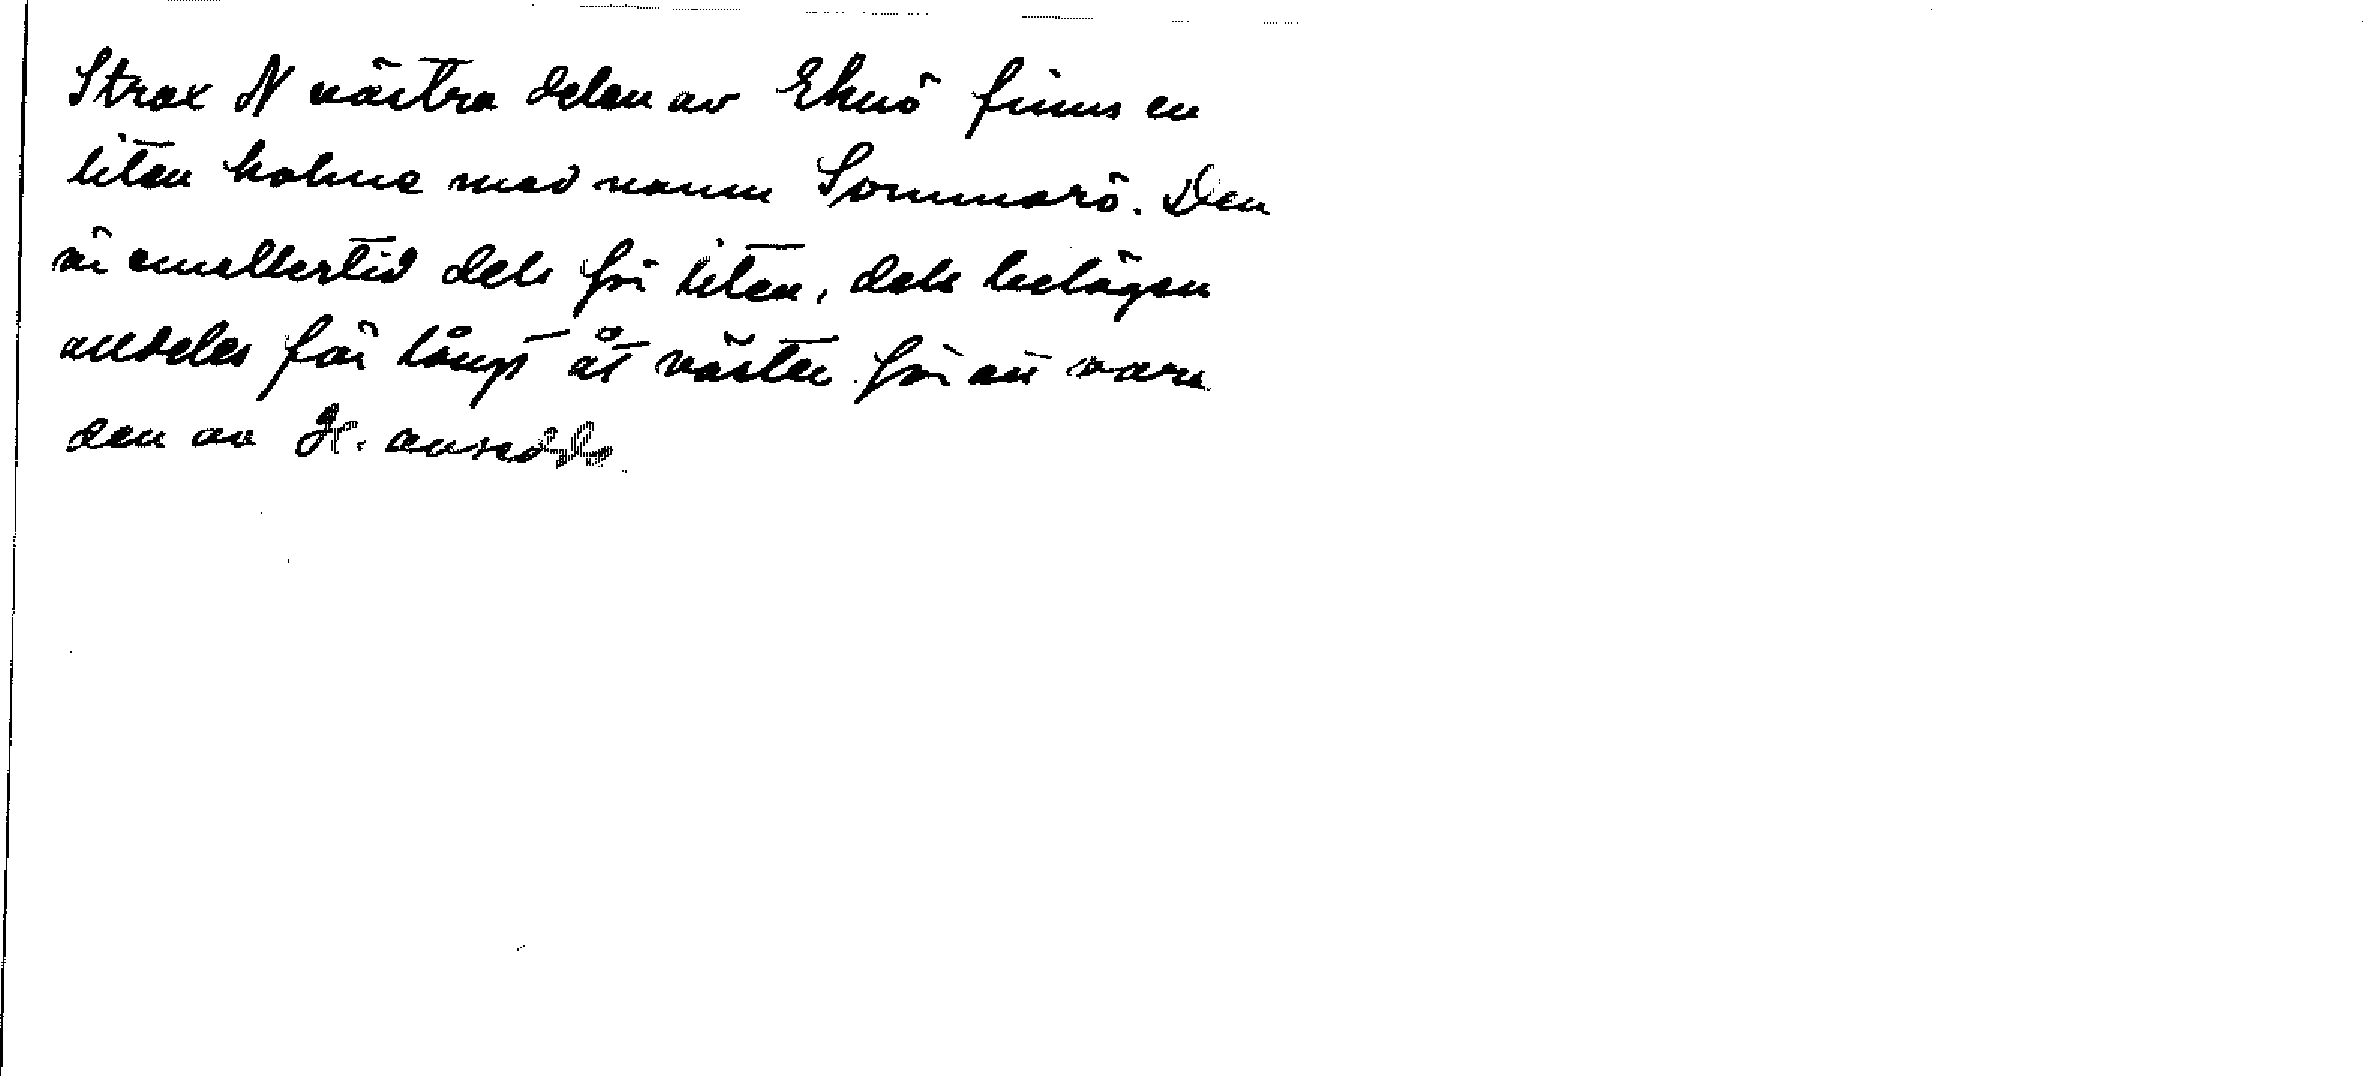 Strax N västra delen av Eknö finns en
liten holme med namn Sommarö. Den
är emellertid dels för liten, dels belägen
alldeles för långt åt väster för att vara
den av H. avsedda.